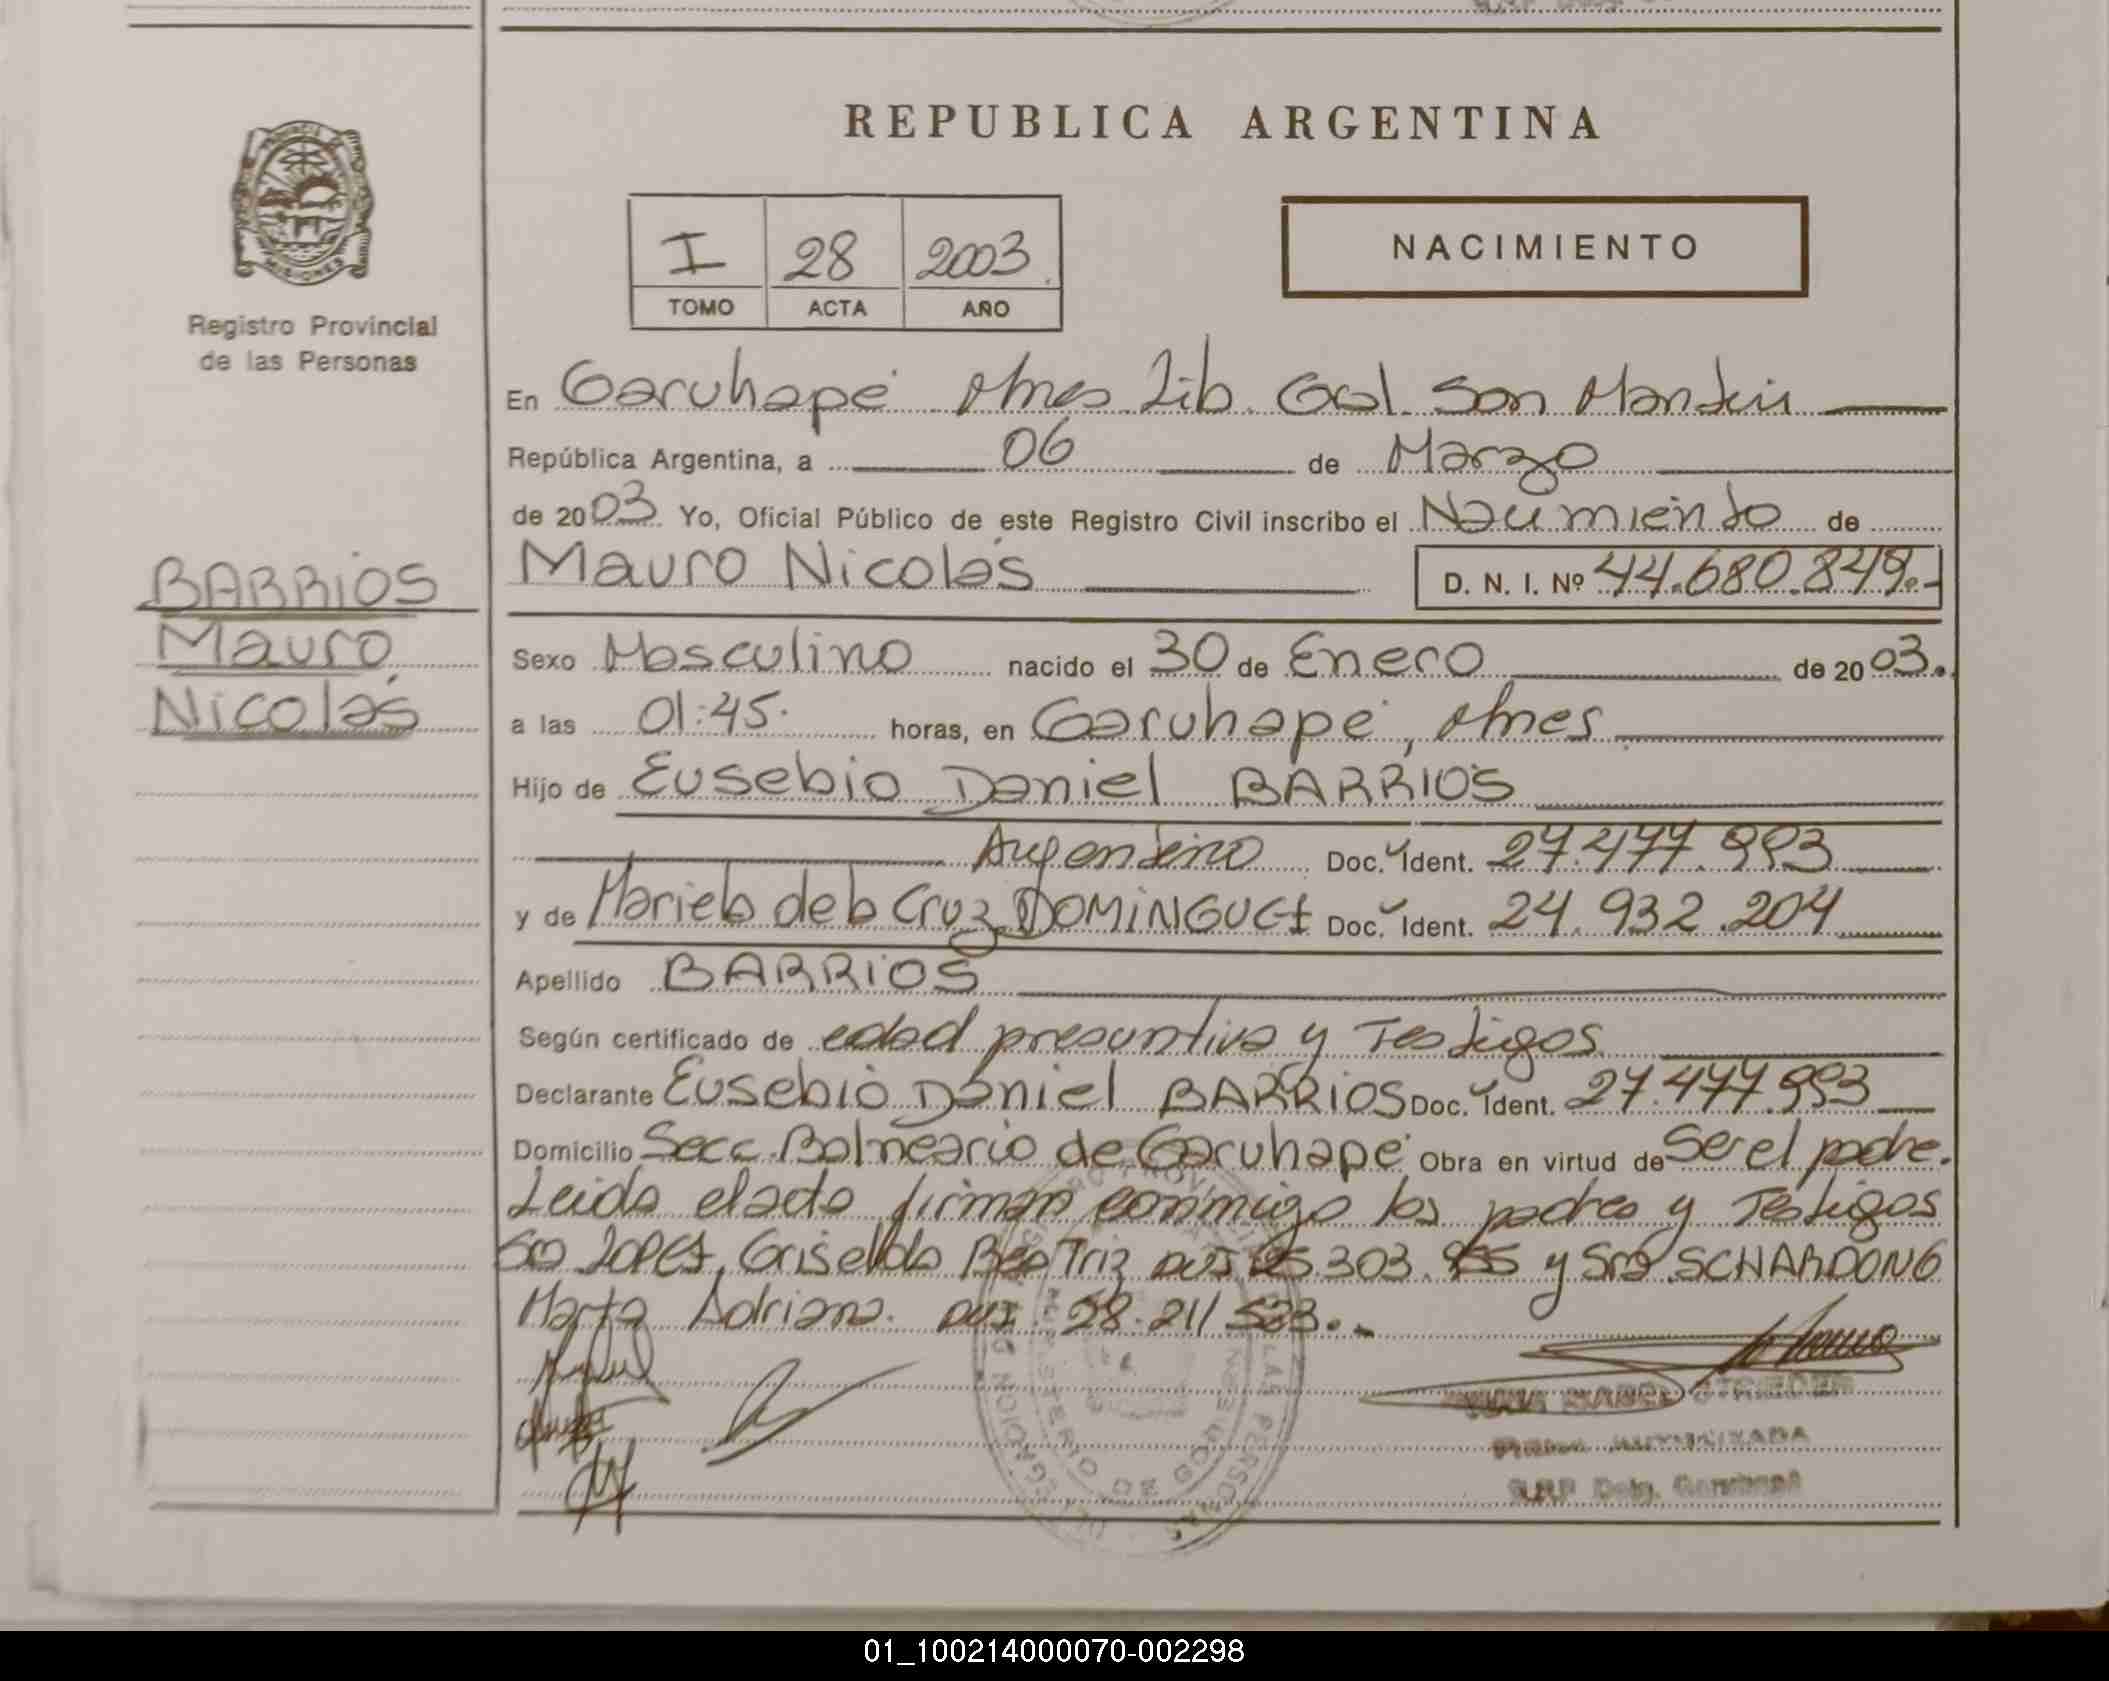 REPUBLICA ARGENTINA
I 28 2003
TOMO ACTA AÑO
NACIMIENTO
MISIONES
Registro Provincial
de las Personas
BARRIOS
Mauro
Nicolás
En Garuhapé Mnes Lib. Gral. San Martin
República Argentina, a 06 de Marzo
de 2003 Yo, Oficial Público de este Registro Civil inscribo el Nacimiento de
Mauro Nicolás D. N. I. Nº 44.680.849.-
Sexo Masculino nacido el 30 de Enero de 2003.
a las 01:45. horas, en Garuhapé, Mnes
Hijo de Eusebio Daniel BARRIOS
Argentino Doc. Ident. 27.477.993
y de Mariela de la Cruz DOMINGUEZ Doc. Ident. 24.932.204
Apellido BARRIOS
Según certificado de edad presuntiva y Testigos
Declarante Eusebio Daniel BARRIOS Doc. Ident. 27.477.993
Domicilio Secc. Balneario de Garuhapé Obra en virtud de Ser el padre.
Leida el acta firman conmigo los padres y Testigos
Sra LOPEZ, Griselda Beatriz DNI 303. y Sra SCHARDONG
Marta Adriana. DNI 28.211 533.-
STRIEDER
FIRMA AUTORIZADA
R.P.P Deleg. Garuhapé
01_100214000070-002298